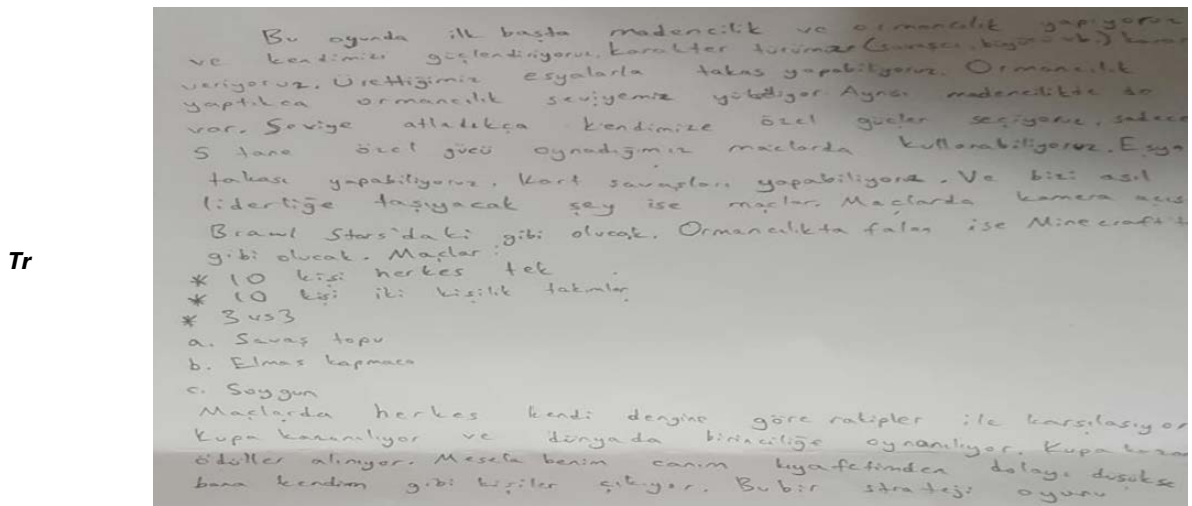 Bu oyunda ilk başta madencilik ve ormancılık yapıyoruz
ve kendimizi güçlendiriyoruz. Karakter türümüze (savaşcı, büyücü vb.) karar
veriyoruz. Ürettiğimiz esyalarla takas yapabiliyoruz. Ormancılık
yaptıkca ormancılık seviyemiz yükseliyor. Aynısı madencilikte de
var. Seviye atladıkça kendimize özel gücler seçiyoruz, sadece
5 tane özel gücü oynadığımız maclarda kullanabiliyoruz. Eşya
takası yapabiliyoruz. Kart savaşları yapabiliyoruz. Ve bizi asıl
liderliğe taşıyacak şey ise maçlar. Maclarda kamera acısı
Brawl Stars'daki gibi olucak. Ormancılıkta falan ise Minecraft't
gibi olucak. Maçlar:
* 10 kişi herkes tek
* 10 kişi iki kişilik takımlar
* 3 vs 3
a. Savaş topu
b. Elmas kapmaca
c. Soygun
Maclarda herkes kendi dengine göre rakipler ile karsılasıyor
Kupa kazanılıyor ve dünyada birinciliğe oynanılıyor. Kupa
ödüller alınıyor. Mesela benim canım kıyafetimden dolayı düşükse
bana kendim gibi kişiler çıkıyor. Bu bir strateji oyunu
Tr